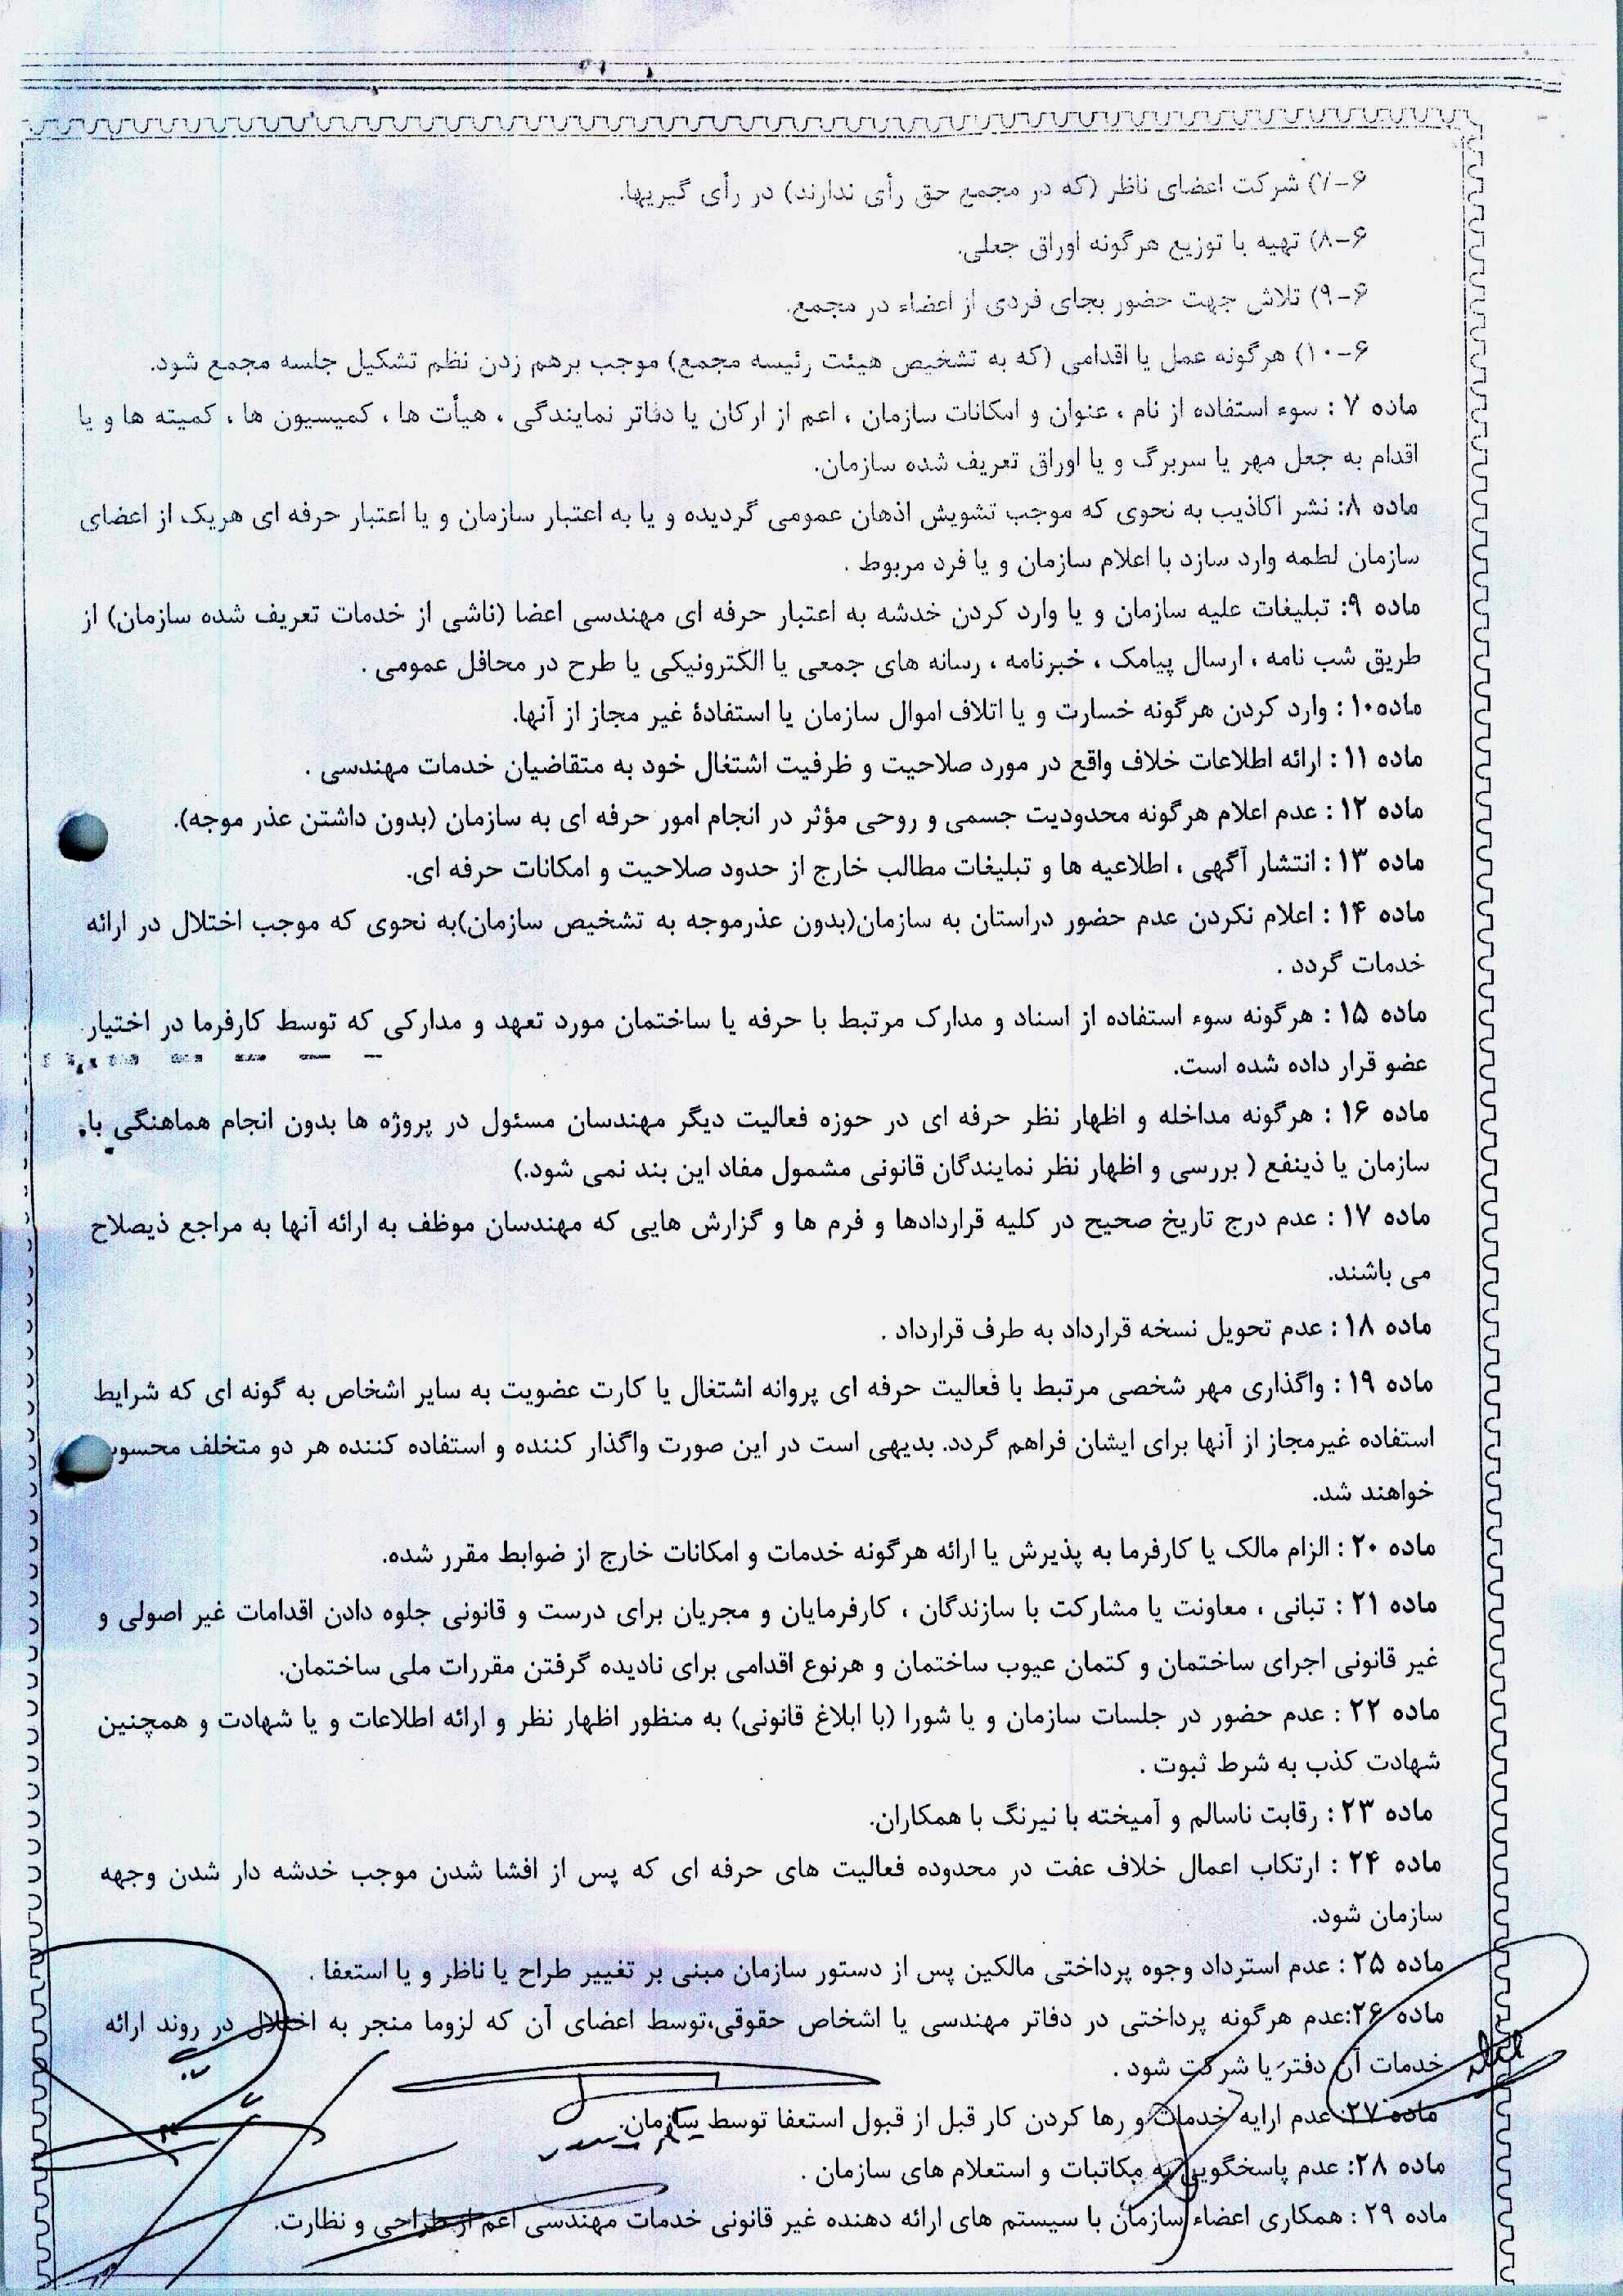 ۶-۷) شرکت اعضای ناظر (که در مجمع حق رأی ندارند) در رأی گیریها.
۶-۸) تهیه با توزیع هرگونه اوراق جعلی.
۶-۹) تلاش جهت حضور بجای فردی از اعضاء در مجمع.
۶-۱۰) هرگونه عمل یا اقدامی (که به تشخیص هیئت رئیسه مجمع) موجب برهم زدن نظم تشکیل جلسه مجمع شود.
ماده ۷ : سوء استفاده از نام ، عنوان و امکانات سازمان ، اعم از ارکان یا دفاتر نمایندگی ، هیأت ها ، کمیسیون ها ، کمیته ها و یا
اقدام به جعل مهر یا سربرگ و یا اوراق تعریف شده سازمان.
ماده ۸: نشر اکاذیب به نحوی که موجب تشویش اذهان عمومی گردیده و یا به اعتبار سازمان و یا اعتبار حرفه ای هریک از اعضای
سازمان لطمه وارد سازد با اعلام سازمان و یا فرد مربوط .
ماده ۹: تبلیغات علیه سازمان و یا وارد کردن خدشه به اعتبار حرفه ای مهندسی اعضا (ناشی از خدمات تعریف شده سازمان) از
طریق شب نامه ، ارسال پیامک ، خبرنامه ، رسانه های جمعی یا الکترونیکی یا طرح در محافل عمومی .
ماده۱۰ : وارد کردن هرگونه خسارت و یا اتلاف اموال سازمان یا استفادهٔ غیر مجاز از آنها.
ماده ۱۱ : ارائه اطلاعات خلاف واقع در مورد صلاحیت و ظرفیت اشتغال خود به متقاضیان خدمات مهندسی .
ماده ۱۲ : عدم اعلام هرگونه محدودیت جسمی و روحی مؤثر در انجام امور حرفه ای به سازمان (بدون داشتن عذر موجه).
ماده ۱۳ : انتشار آگهی ، اطلاعیه ها و تبلیغات مطالب خارج از حدود صلاحیت و امکانات حرفه ای.
ماده ۱۴ : اعلام نکردن عدم حضور دراستان به سازمان(بدون عذرموجه به تشخیص سازمان)به نحوی که موجب اختلال در ارائه
خدمات گردد .
ماده ۱۵ : هرگونه سوء استفاده از اسناد و مدارک مرتبط با حرفه یا ساختمان مورد تعهد و مدارکی که توسط کارفرما در اختیار
عضو قرار داده شده است.
ماده ۱۶ : هرگونه مداخله و اظهار نظر حرفه ای در حوزه فعالیت دیگر مهندسان مسئول در پروژه ها بدون انجام هماهنگی با
سازمان یا ذینفع ( بررسی و اظهار نظر نمایندگان قانونی مشمول مفاد این بند نمی شود.)
ماده ۱۷ : عدم درج تاریخ صحیح در کلیه قراردادها و فرم ها و گزارش هایی که مهندسان موظف به ارائه آنها به مراجع ذیصلاح
می باشند.
ماده ۱۸ : عدم تحویل نسخه قرارداد به طرف قرارداد .
ماده ۱۹ : واگذاری مهر شخصی مرتبط با فعالیت حرفه ای پروانه اشتغال یا کارت عضویت به سایر اشخاص به گونه ای که شرایط
استفاده غیرمجاز از آنها برای ایشان فراهم گردد. بدیهی است در این صورت واگذار کننده و استفاده کننده هر دو متخلف محسوب
خواهند شد.
ماده ۲۰ : الزام مالک یا کارفرما به پذیرش یا ارائه هرگونه خدمات و امکانات خارج از ضوابط مقرر شده.
ماده ۲۱ : تبانی ، معاونت یا مشارکت با سازندگان ، کارفرمایان و مجریان برای درست و قانونی جلوه دادن اقدامات غیر اصولی و
غیر قانونی اجرای ساختمان و کتمان عیوب ساختمان و هرنوع اقدامی برای نادیده گرفتن مقررات ملی ساختمان.
ماده ۲۲ : عدم حضور در جلسات سازمان و یا شورا (با ابلاغ قانونی) به منظور اظهار نظر و ارائه اطلاعات و یا شهادت و همچنین
شهادت کذب به شرط ثبوت .
ماده ۲۳ : رقابت ناسالم و آمیخته با نیرنگ با همکاران.
ماده ۲۴ : ارتکاب اعمال خلاف عفت در محدوده فعالیت های حرفه ای که پس از افشا شدن موجب خدشه دار شدن وجهه
سازمان شود.
ماده ۲۵ : عدم استرداد وجوه پرداختی مالکین پس از دستور سازمان مبنی بر تغییر طراح یا ناظر و یا استعفا .
ماده ۲۶:عدم هرگونه پرداختی در دفاتر مهندسی یا اشخاص حقوقی،توسط اعضای آن که لزوما منجر به اختلال در روند ارائه
خدمات آن دفتر یا شرکت شود .
ماده ۲۷: عدم ارایه خدمات و رها کردن کار قبل از قبول استعفا توسط سازمان.
ماده ۲۸: عدم پاسخگویی به مکاتبات و استعلام های سازمان .
ماده ۲۹ : همکاری اعضاء سازمان با سیستم های ارائه دهنده غیر قانونی خدمات مهندسی اعم از طراحی و نظارت.